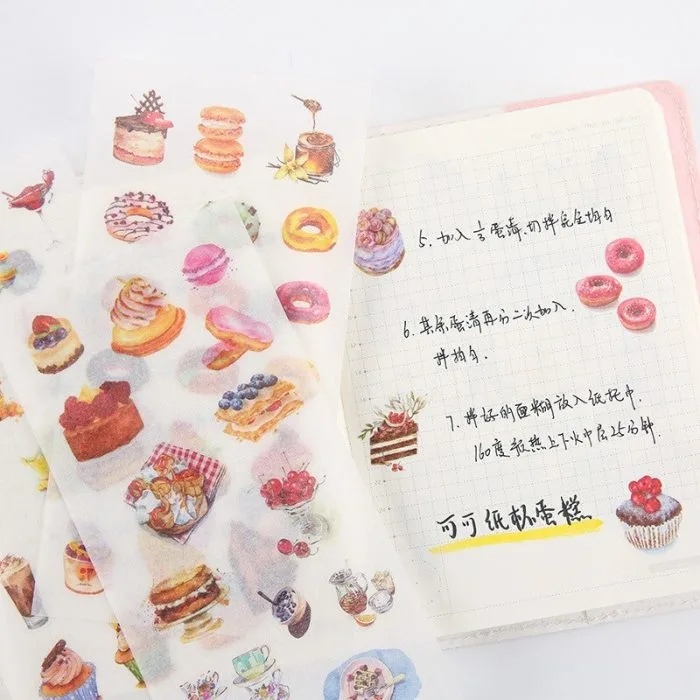 5. 加入⅓蛋清,切拌完全均匀
6. 其余蛋清再分二次加入,
拌均匀.
7. 拌好的面糊放入纸托中.
160度预热上下火中层25分钟.
可可纸杯蛋糕